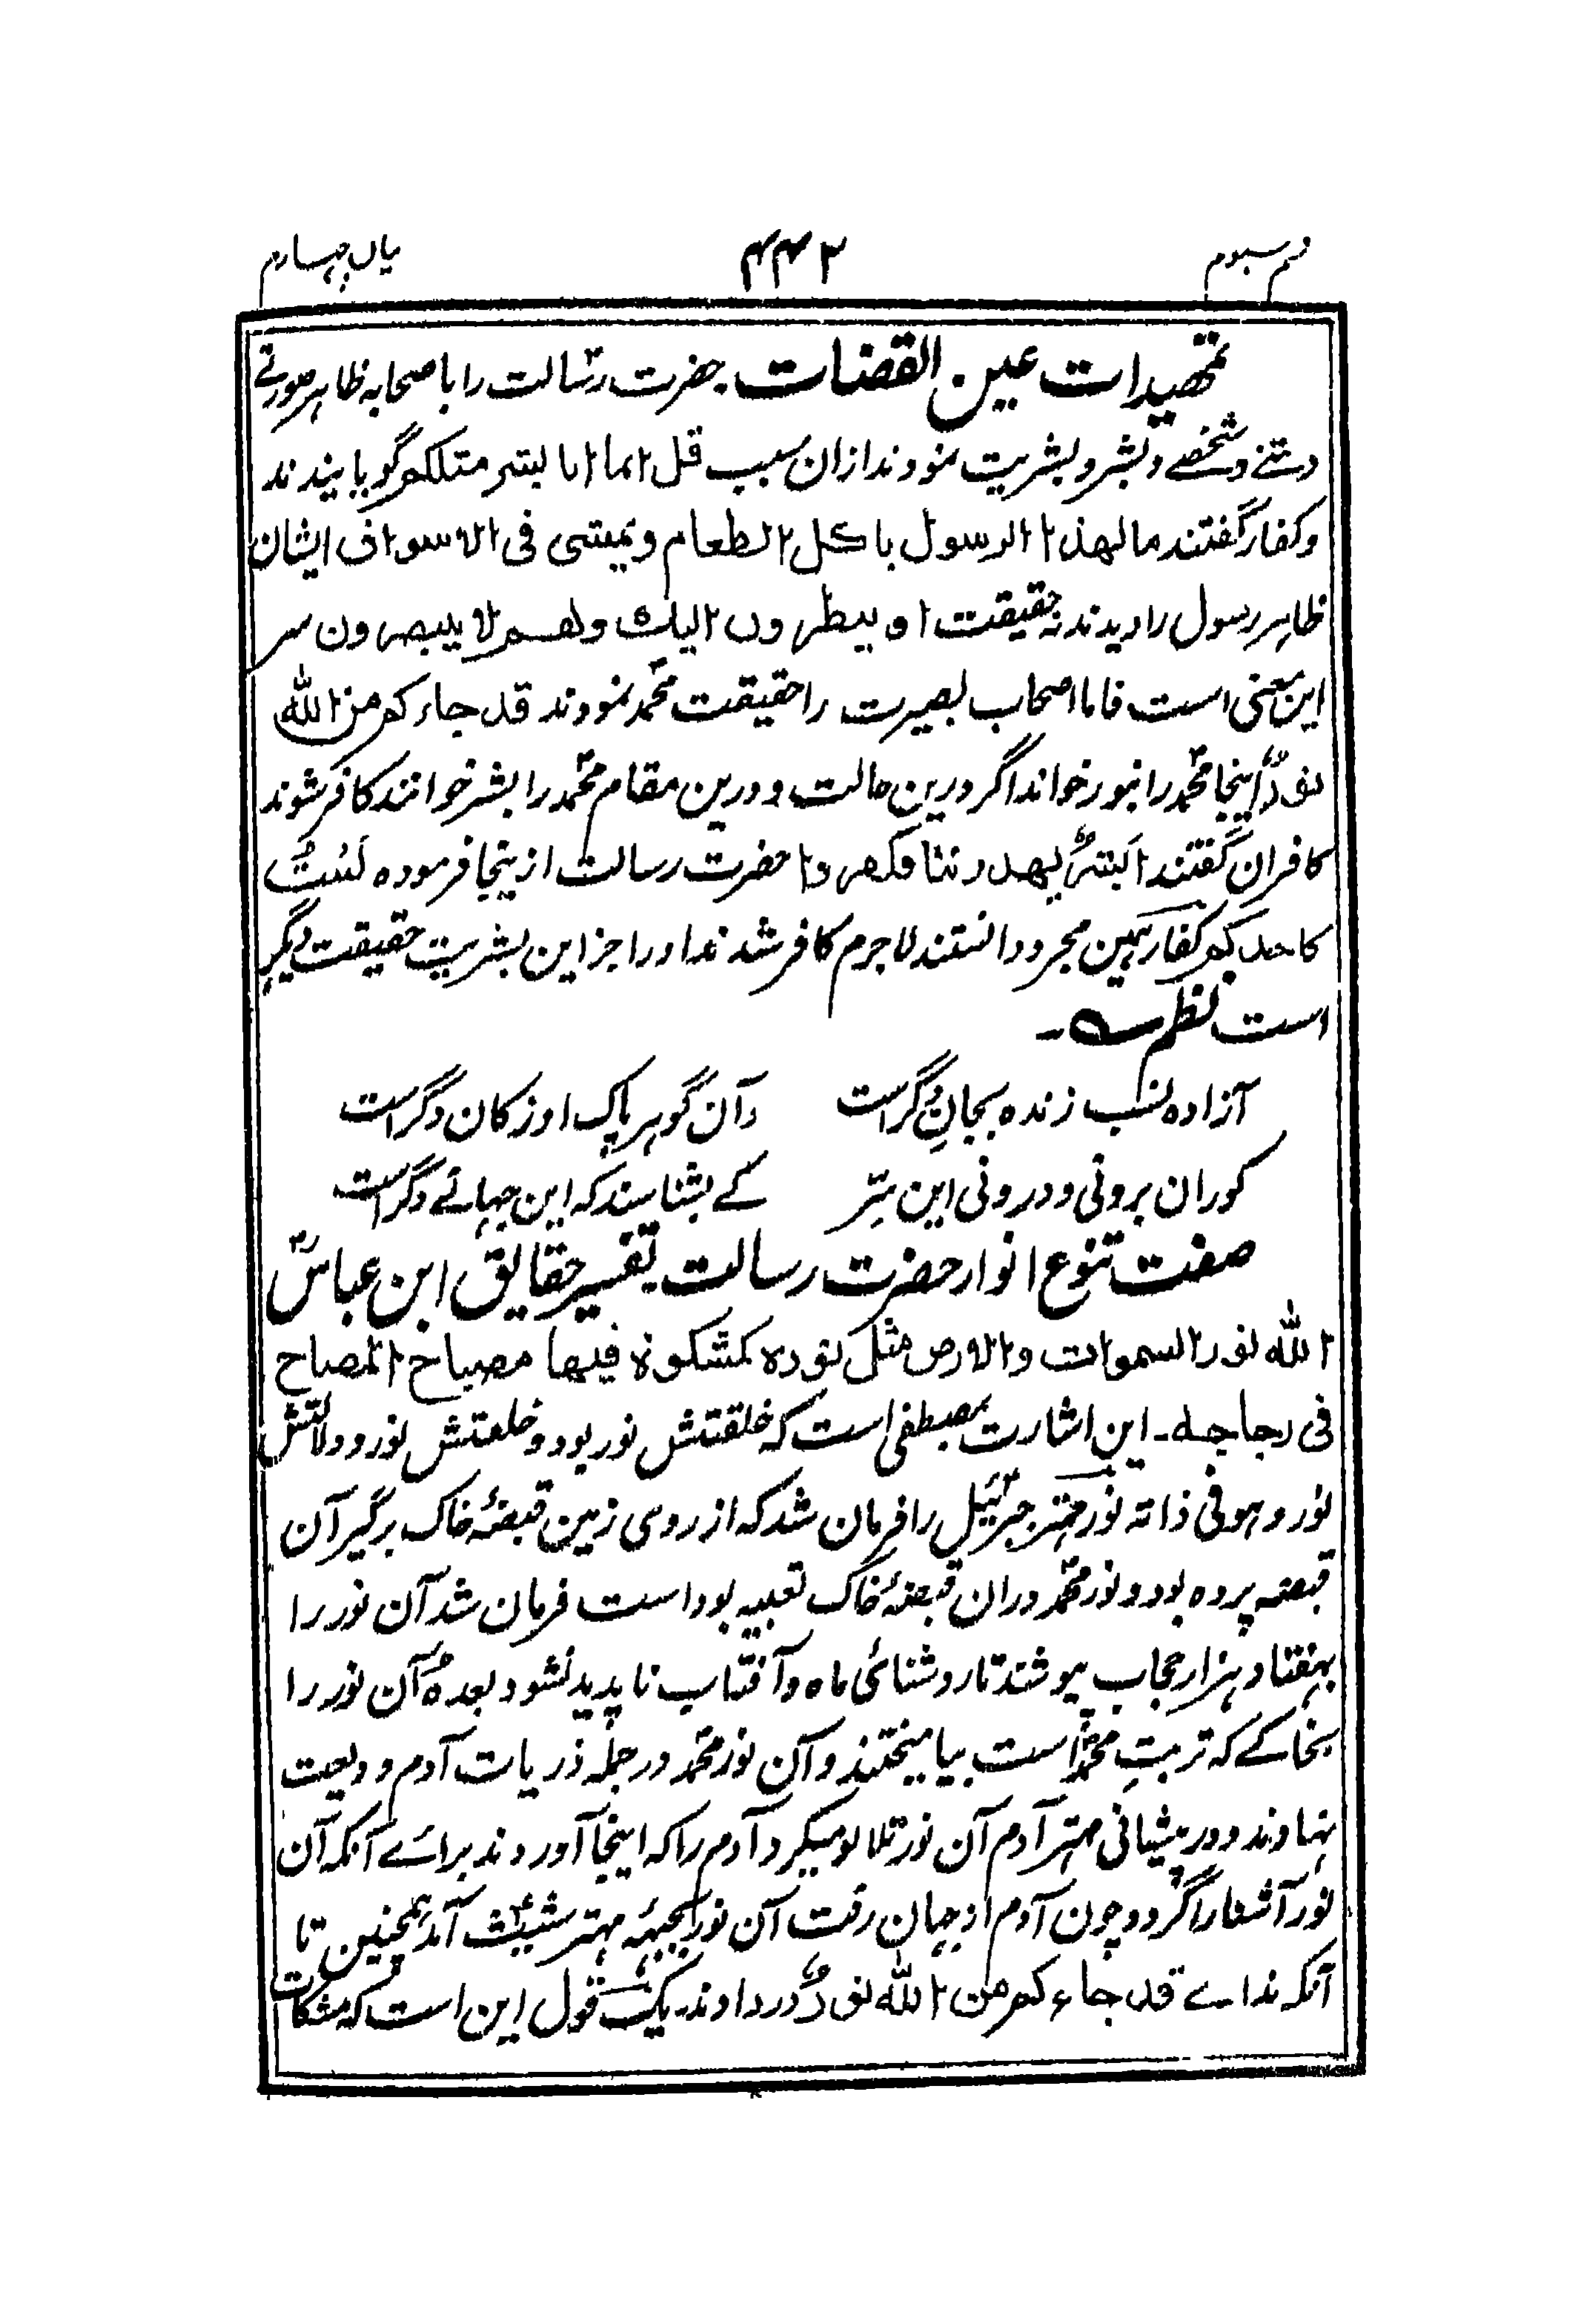 قسم سیوم ۴۴۲ بیان چہارم
تمھیدات عین القضات۔ حضرت رسالت را با صحابہ ظاہر صورتے
و تنے و شخصے و بشر و بشریت نمودند ازان سبب قل انما انا بشر مثلکم گویا نیدند
و کفار گفتند مالهذا الرسول یاکل الطعام و یمشی فی الاسواق ایشان
ظاہر رسول را دیدند نہ حقیقت او ینظرون الیک و هم لا یبصرون سر
این معنی است فاما اصحاب بصیرت را حقیقت محمدؐ نمودند قد جاءکم من الله
نورٌ اینجا محمدؐ را نور خواند اگر درین حالت و درین مقام محمدؐ را بشر خوانند کافر شوند
کافران گفتند ابشرٌ یهدوننا فکفروا حضرت رسالت ازینجا فرمودہ لستُ
کاحدکم کفار ہمین مجرد دانستند لاجرم کافر شدند او را جز این بشریت حقیقت دیگر
است نظم ۔
آزادہ نسب زندہ بجانِ دگر است وآن گوہر پاک او ز کان دگر است
کوران برونی و درونی این سِرّ کے بشناسند کہ این جہانے دگر است
صفت تنوع انوار حضرت رسالت۔ تفسیر حقایق ابن عباسؓ
الله نور السموات والارض مثل نوره کمشکوة فیها مصباح المصباح
فی زجاجه۔ این اشارت بمصطفی است کہ خلقتش نور بود و خلعتش نور و ولادتش
نور و ہو فی ذاتہ نور مہتر جبرئیلؑ را فرمان شد کہ از روی زمین قبضۂ خاک برگیر آن
قبضہ پردہ بود و نور محمدؐ دران قبضۂ خاک تعبیہ بودہ است فرمان شد آن نور را
بہفتاد ہزار حجاب بپوشند تا روشنائی ماہ و آفتاب ناپدید نشود بعدہٗ آن نور را
بخاکے کہ تربتِ محمدؐ است بیامیختند و آن نور محمدؐ در جملہ ذریات آدم ودیعت
نہادند و در پیشانی مہتر آدم آن نور تلالو میکرد آدم را کہ اینجا آوردند برائے آنکہ آن
نور آشکارا گردد چون آدم از جہان رفت آن نور بجبہۂ مہتر شیثؑ آمد ہمچنین تا
آنکہ نداے قد جاءکم من الله نورٌ در دادند۔ یک قول این است کہ مشکات